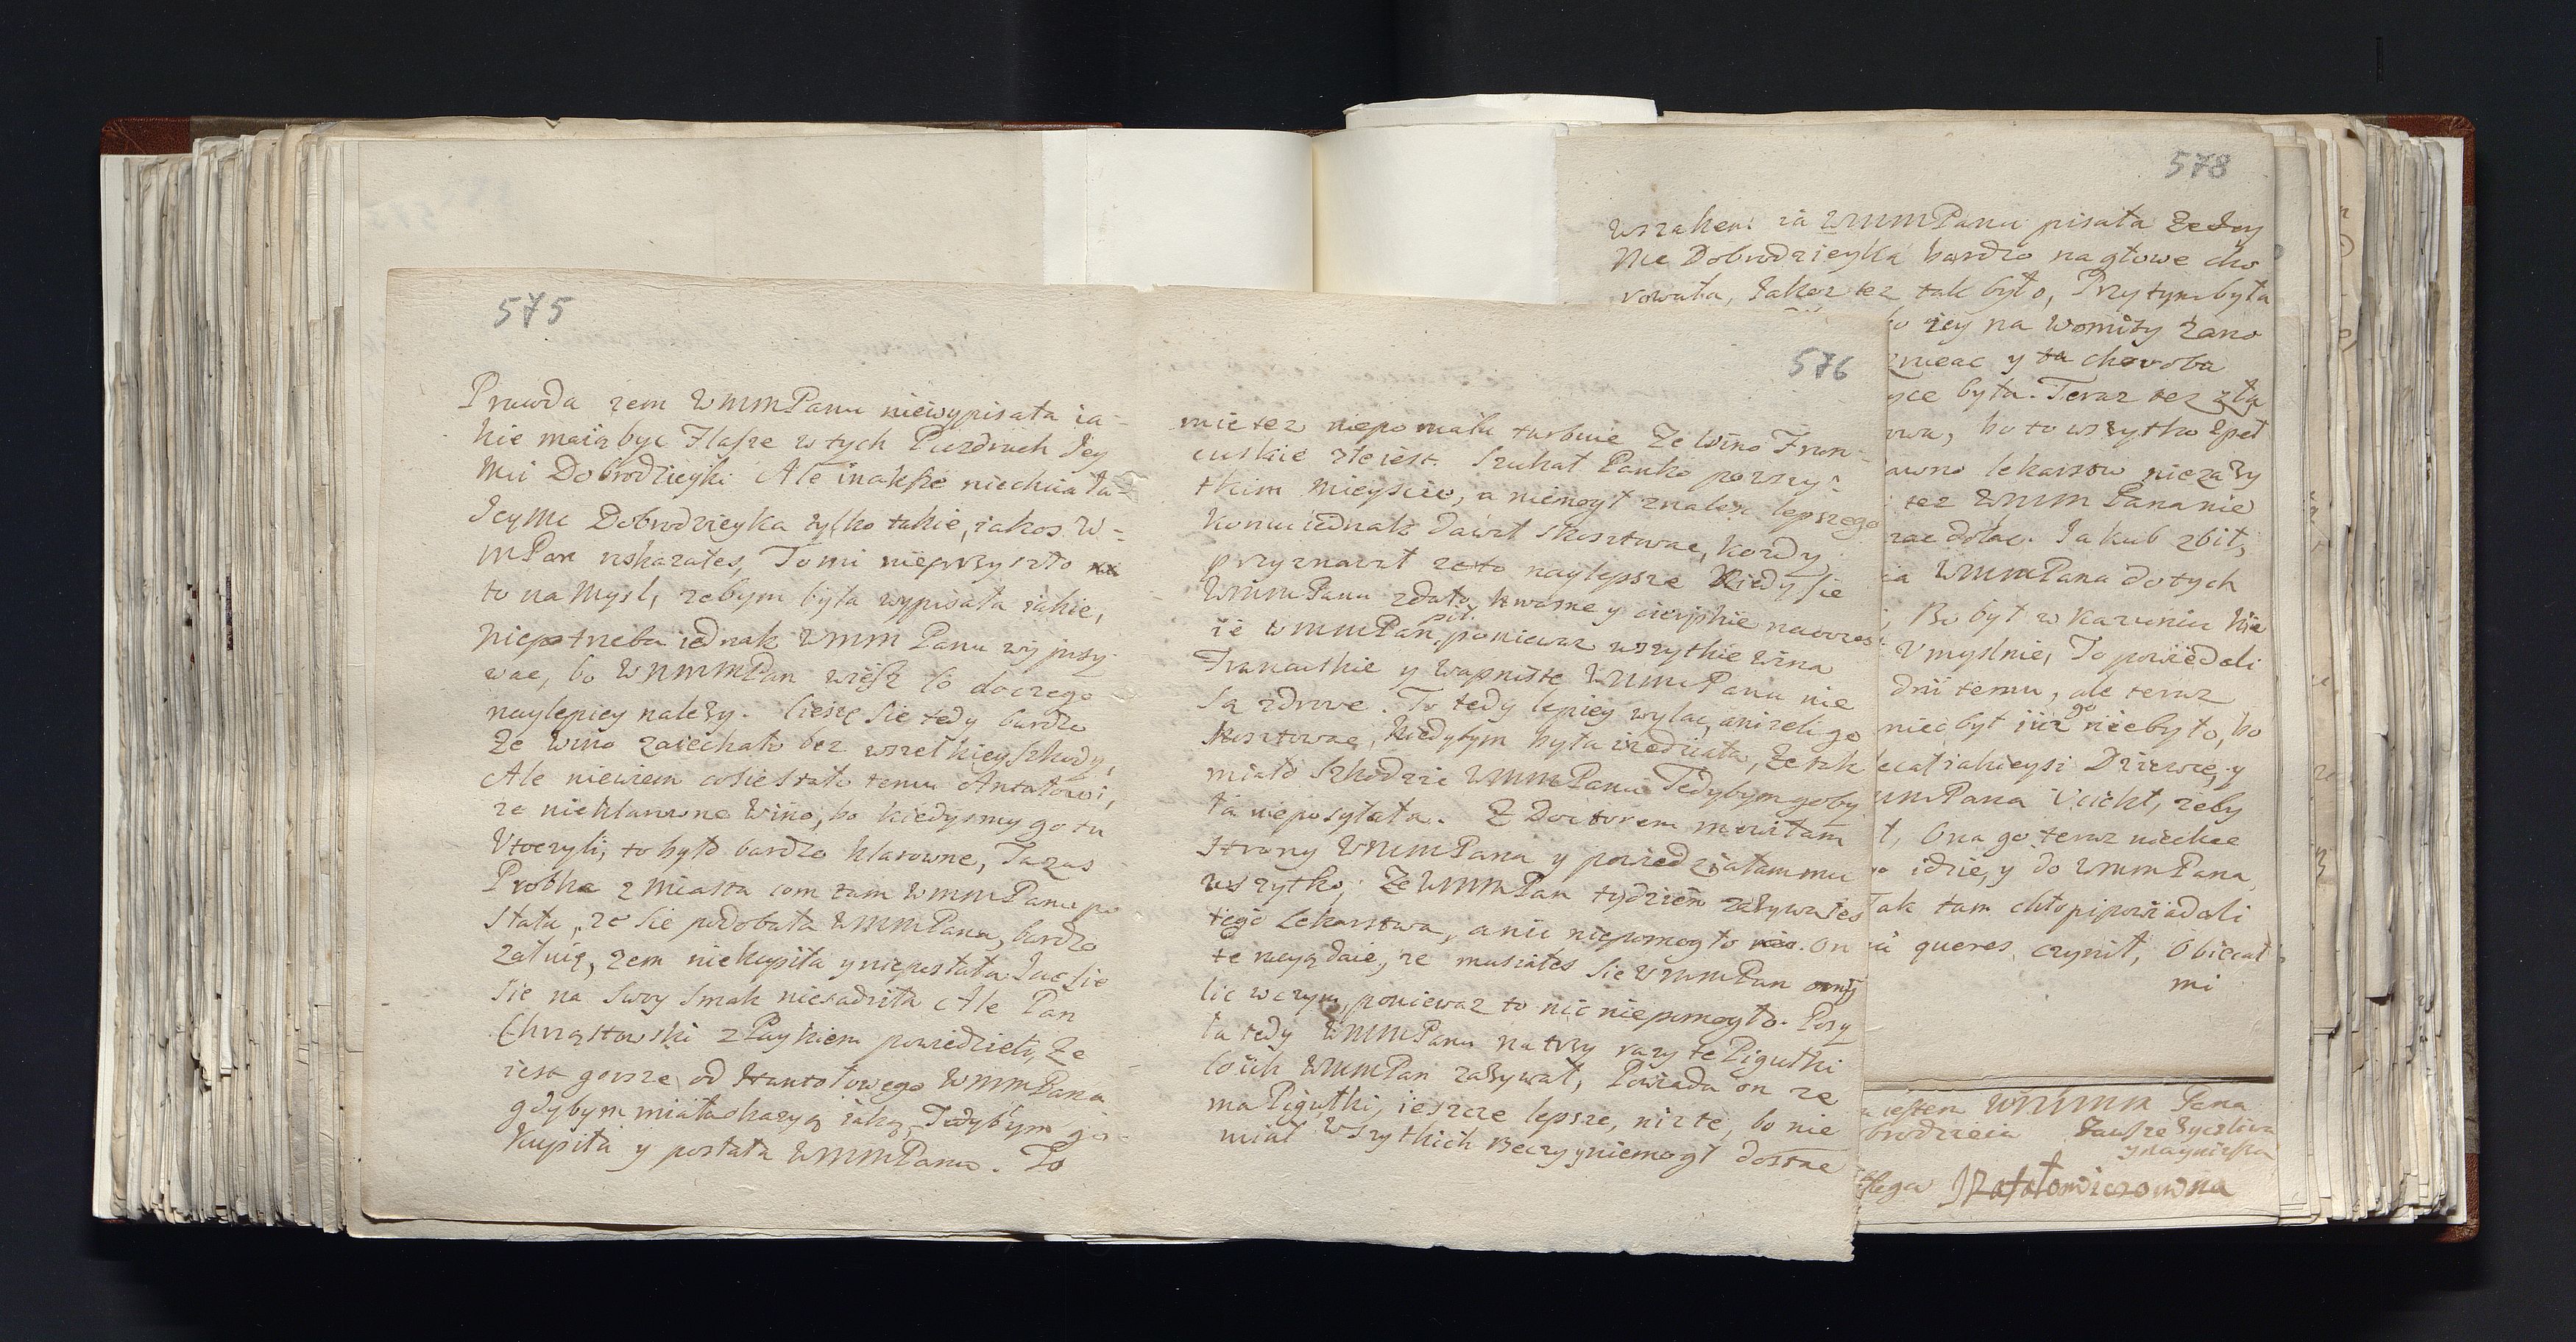 575
Prawda zem WMMPanu niewypisała ia-
kie maią byc Flasze w tych Puzdrach Jey
Mci Dobrodzieyki Ale inaksze niechciała
JeyMc Dobrodzieyka tylko takie, iakos W-
mPan wskazałes, To mi nieprzyszło
to na Mysl, zebym była wypisała iakie,
niepotrzeba iednak WMM Panu wypisy-
wac, bo WMMMPan wiesz co do czego
naylepiey należy. Ciesze sie tedy bardzo
Ze Wino zaiechało bez wszelkiey szkody,
Ale niewiem co sie stało temu Antałowi,
ze nieklarowne Wino, bo kiedysmy go tu
Utoczyli, to było bardzo klarowne, Ta zas
Probka z Miasta com tam WMMPanu po
słała, ze sie podobała WMMPanu, bardzo
załuię, zem niekupiła y nieposłała Jac sie
sie na swoy smak niesadziła Ale Pan
Chrząstowski z Paykiem powiedzieli, Ze
iest gorsze od Hantołowego WMMPana
gdybym miała okazyą iaką, Tedybym go
Kupiła y posłała WMMPanu. To
576
mie tez niepomału turbuie Ze Wino Fran-
cuskie złe iest. Szukał Panko po wszy-
tkim Mieyscie, a niemogł znalesc lepszego
komu iednak dawał skosztowac, kozdy
przyznawał ze to naylepsze Kiedy sie
WMMPanu zdało, kwasne y cierpkie
ie WMMPan pił, poniewaz wszytkie wina
Francuskie y Wapniste WMMPanu nie
są zdrowe. To tedy lepiey wylac, anizeli go
skosztowac, kiedybym była wiedziała, Ze tak
miało szkodzic WMMPanu Tedybym go by
ła nieposyłała. Z Doctorem mowiłam
strony WMMPana y powiedziałam mu
wszytko, Ze WMMPan tydzien zazywałes
tego Lekarstwa, a nic niepomogło. On
te racyą daie, ze musiałes sie WMMPan omy
lic w czym, poniewaz to nic niepomogło. Posy
ła tedy WMMPanu na trzy razy te Pigułki
co ich WMMPan zazywał, Powiada on ze
ma Pigułki, ieszcze lepsze, niz te, bo nie
miał Wszytkich Reczy y niemogł dostac
578
Wszakem ia WMMPanu pisała Ze Jey
Mc Dobrodzieyka bardzo na głowe cho
rowała, Jakoz tez tak było, Przy tym była
iey na Womity zano
y ta choroba
była. Teraz tez zła
bo to wszytko
lekarstw niezazy
tez WMM Pana nie
Jakub zbił,
ia WMMPana do tych
Bo był w Karwiniu
Umyslnie, To powiedali
dni temu, ale teraz
niec był iuz go niebyło, bo
iakieysi Dziewce, y
Pana Uciekł, zeby
Ona go teraz niechce
idzie, y do WMMPana
Tak tam chłopi powiadali
queres czynił, Obiecał
mi
iestem WMMM Pana
zawsze zyczliwa
y naynizsza
sługa JRafałowiczowna